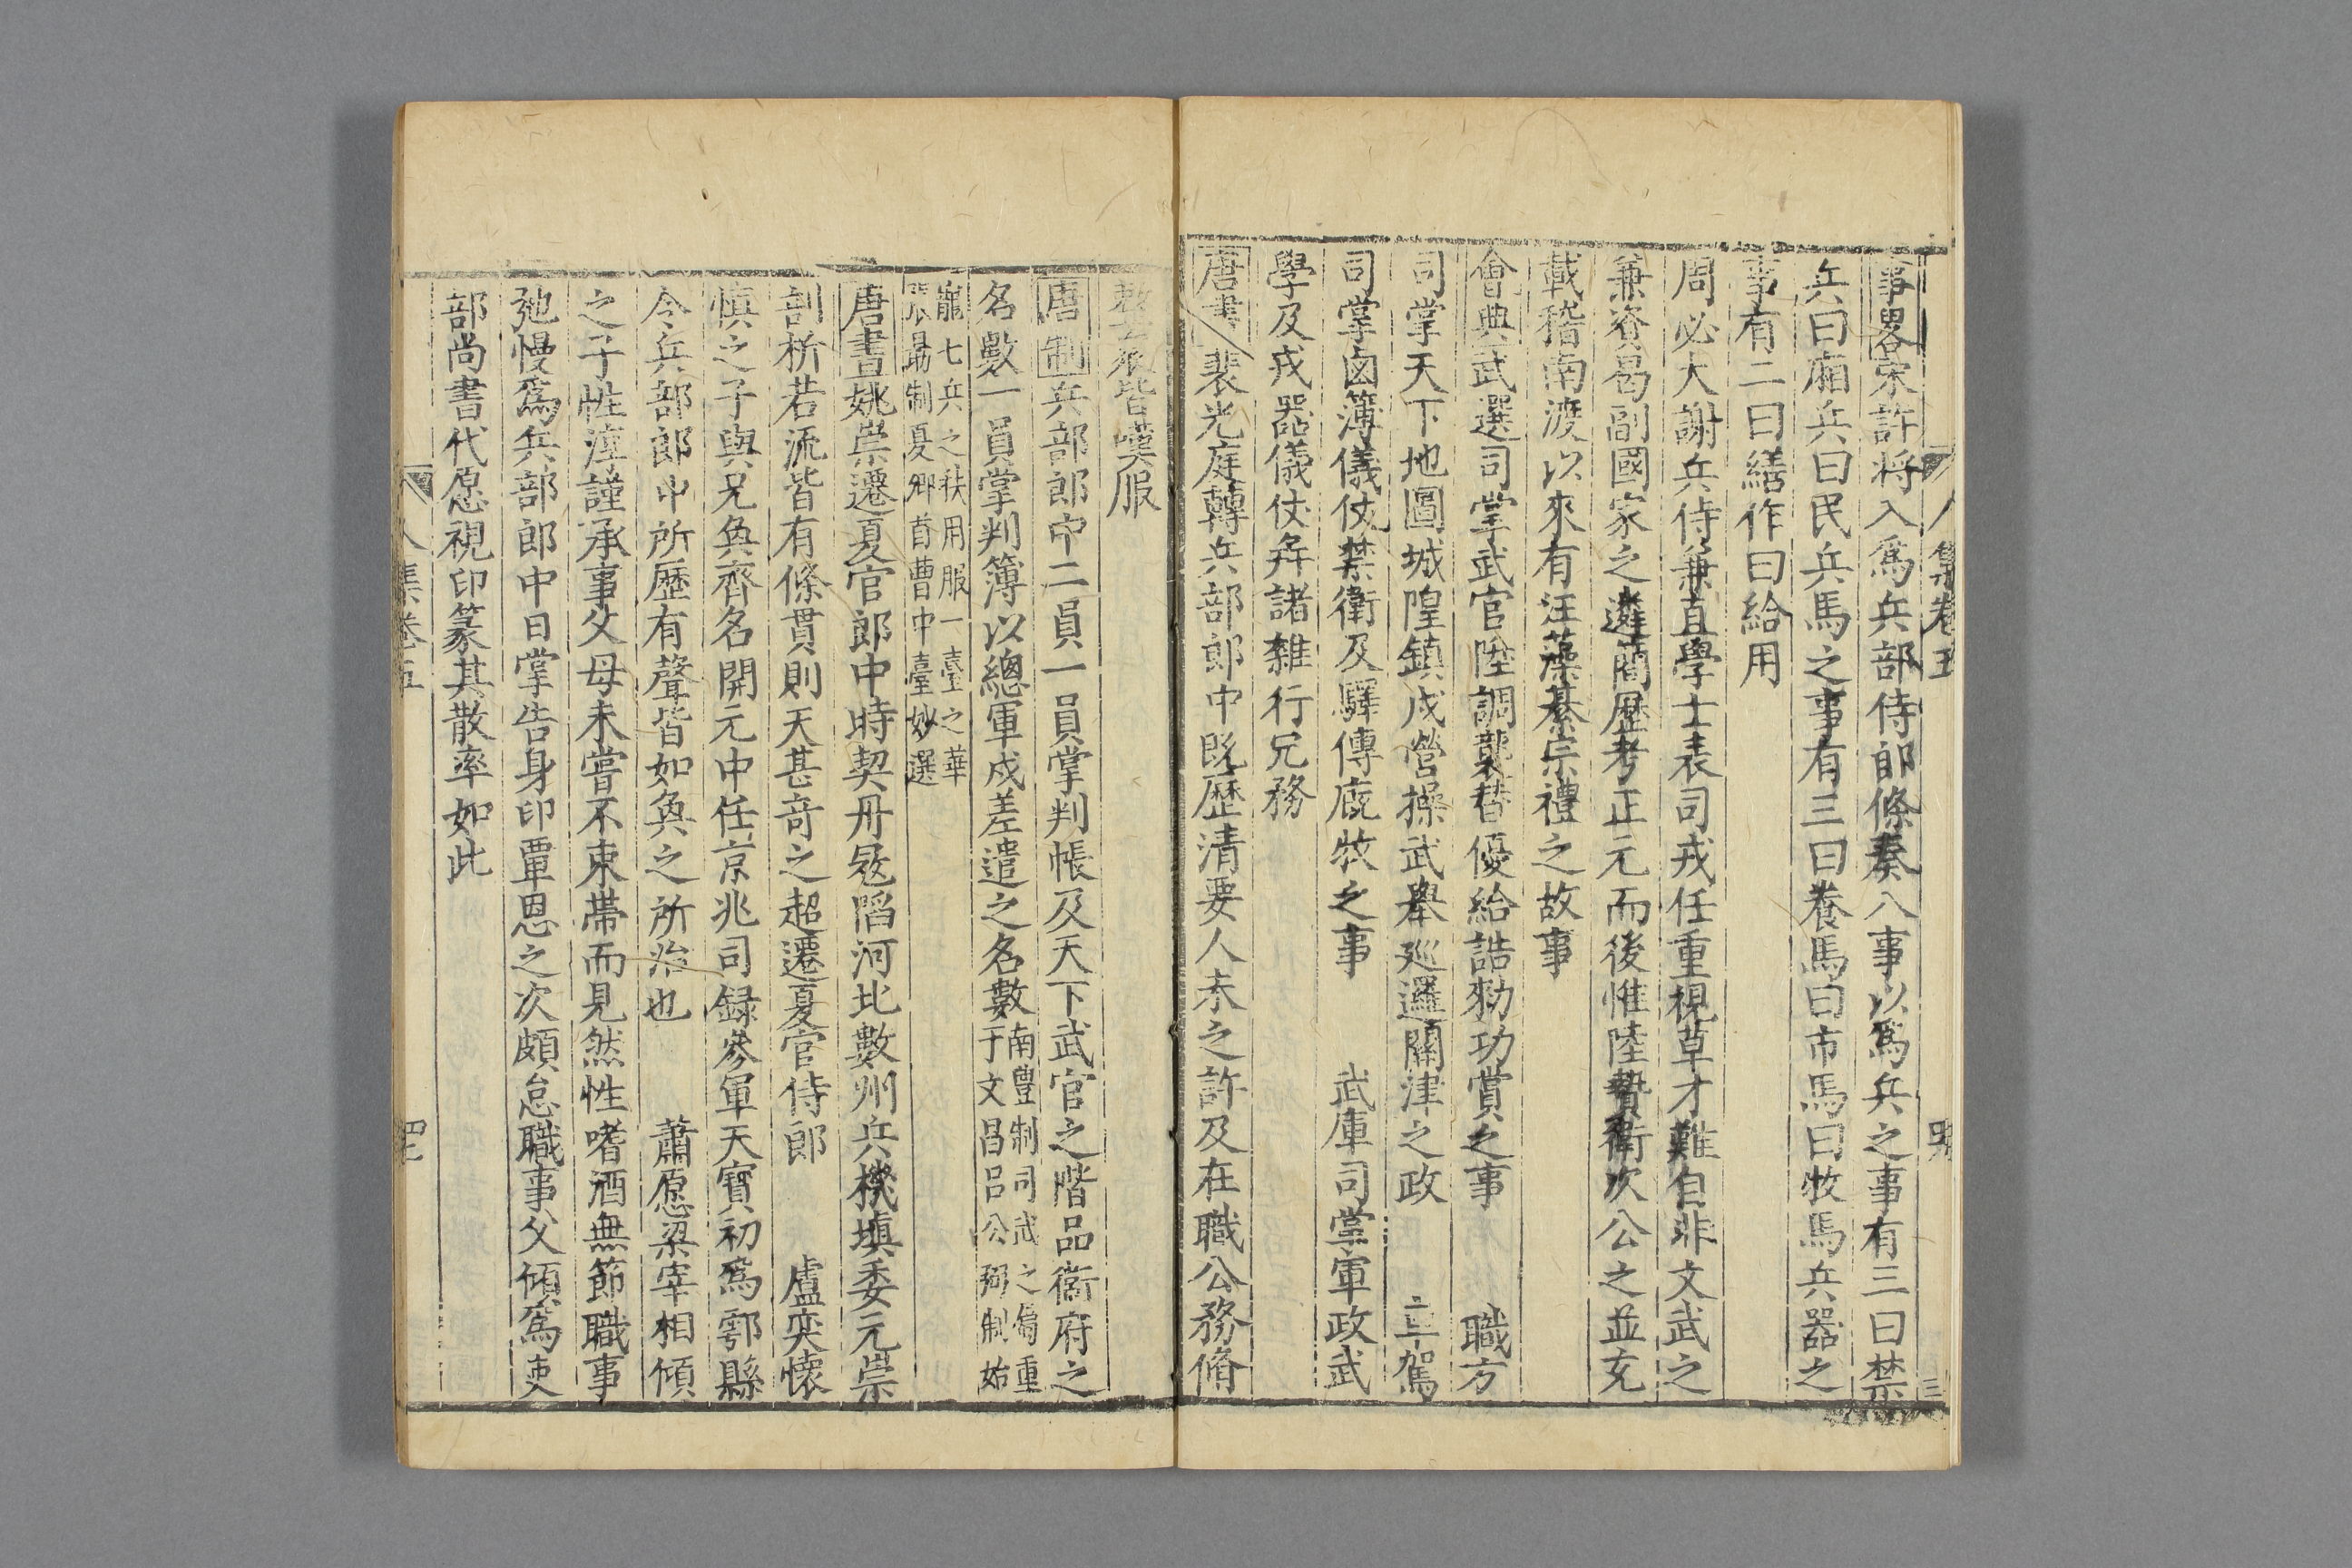 集卷五
事畧宋許将入爲兵部侍郎條奏八事以爲兵之事有三曰禁
兵曰廂兵曰民兵馬之事有三曰養馬曰市馬曰牧馬兵器之
事有二曰繕作曰給用
周必大謝兵侍兼直學士表司戎任重視草才難自非文武之
兼資曷副國家之遴蕳歷考正元而後惟陸贄衛次公之並充
載稽南渡以來有汪藻綦崇禮之故事
會典武選司掌武官陞調襲替優給誥勑功賞之事 職方
司掌天下地圖城隍鎮戍營操武舉廵邏關津之政 車駕
司掌鹵簿儀仗禁衛及驛傳廐牧之事 武庫司掌軍政武
學及戎器儀仗并諸雜行冗務
唐書裴光庭轉兵部郎中既歷清要人未之許及在職公務脩
整衆皆嘆服
唐制兵部郎中二員一員掌判帳及天下武官之階品衛府之
名數一員掌判簿以總軍戍差遣之名數南豊制司武之屬重
于文昌吕公弼制始
寵七兵之秩用服一臺之華
張最制夏卿首曹中臺妙選
唐書姚崇遷夏官郎中時契丹冦陷河北數州兵機塡委元崇
剖析若流皆有條貫則天甚奇之超遷夏官侍郎 盧奕懷
慎之子與兄奐齊名開元中任京兆司録參軍天寶初爲鄠縣
令兵部郎中所歷有聲皆如奐之所治也 蕭愿梁宰相傾
之子性溼謹承事父母未嘗不束帶而見然性嗜酒無節職事
弛慢爲兵部郎中日掌告身印覃恩之次頗怠職事父傾爲吏
部尚書代愿視印篆其散率如此
集卷五